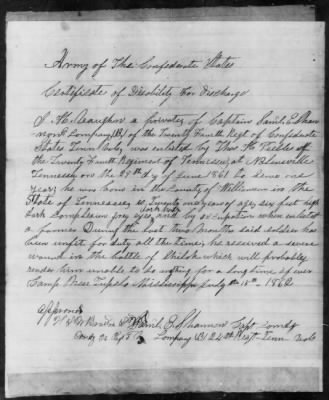 Army of The Confederate States
Certificate of Disability for Discharge
S. H. a private of Captain Saml. E. Shan
non's Company (B) of the Twenty Fourth Regt of Confederate
States Tenn Vols, was enlisted by Thos. H. Peebles of
the Twenty Fourth Regiment of Tennessee, at Nolensville
Tennessee on the day of June 1861 to serve one
year; he was born in the County of Williamson in the
State of Tennessee, is Twenty one years of age, six feet high
dark complexion grey eyes, and by occupation when enlisted
a farmer. During the last two months said soldier has
been unfit for duty all the time; he received a severe
wound in the battle of Shiloh which will probably
render him unable to do anything for a long time if ever
Camp Near Tupelo Mississippi July 1862
Approved
Saml. E. Shannon Capt Comdg
Company (B) 24th Regt. Tenn Vols